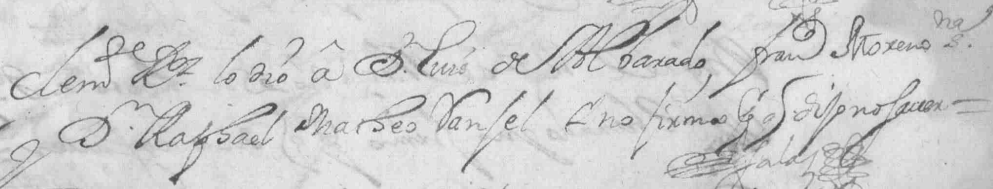 Clemte Rz lo dió â Dn. Luis de Albarado, franco Moreno
y Dn Raphael Matheo Vansel Eno firmo pq dijo no saver =